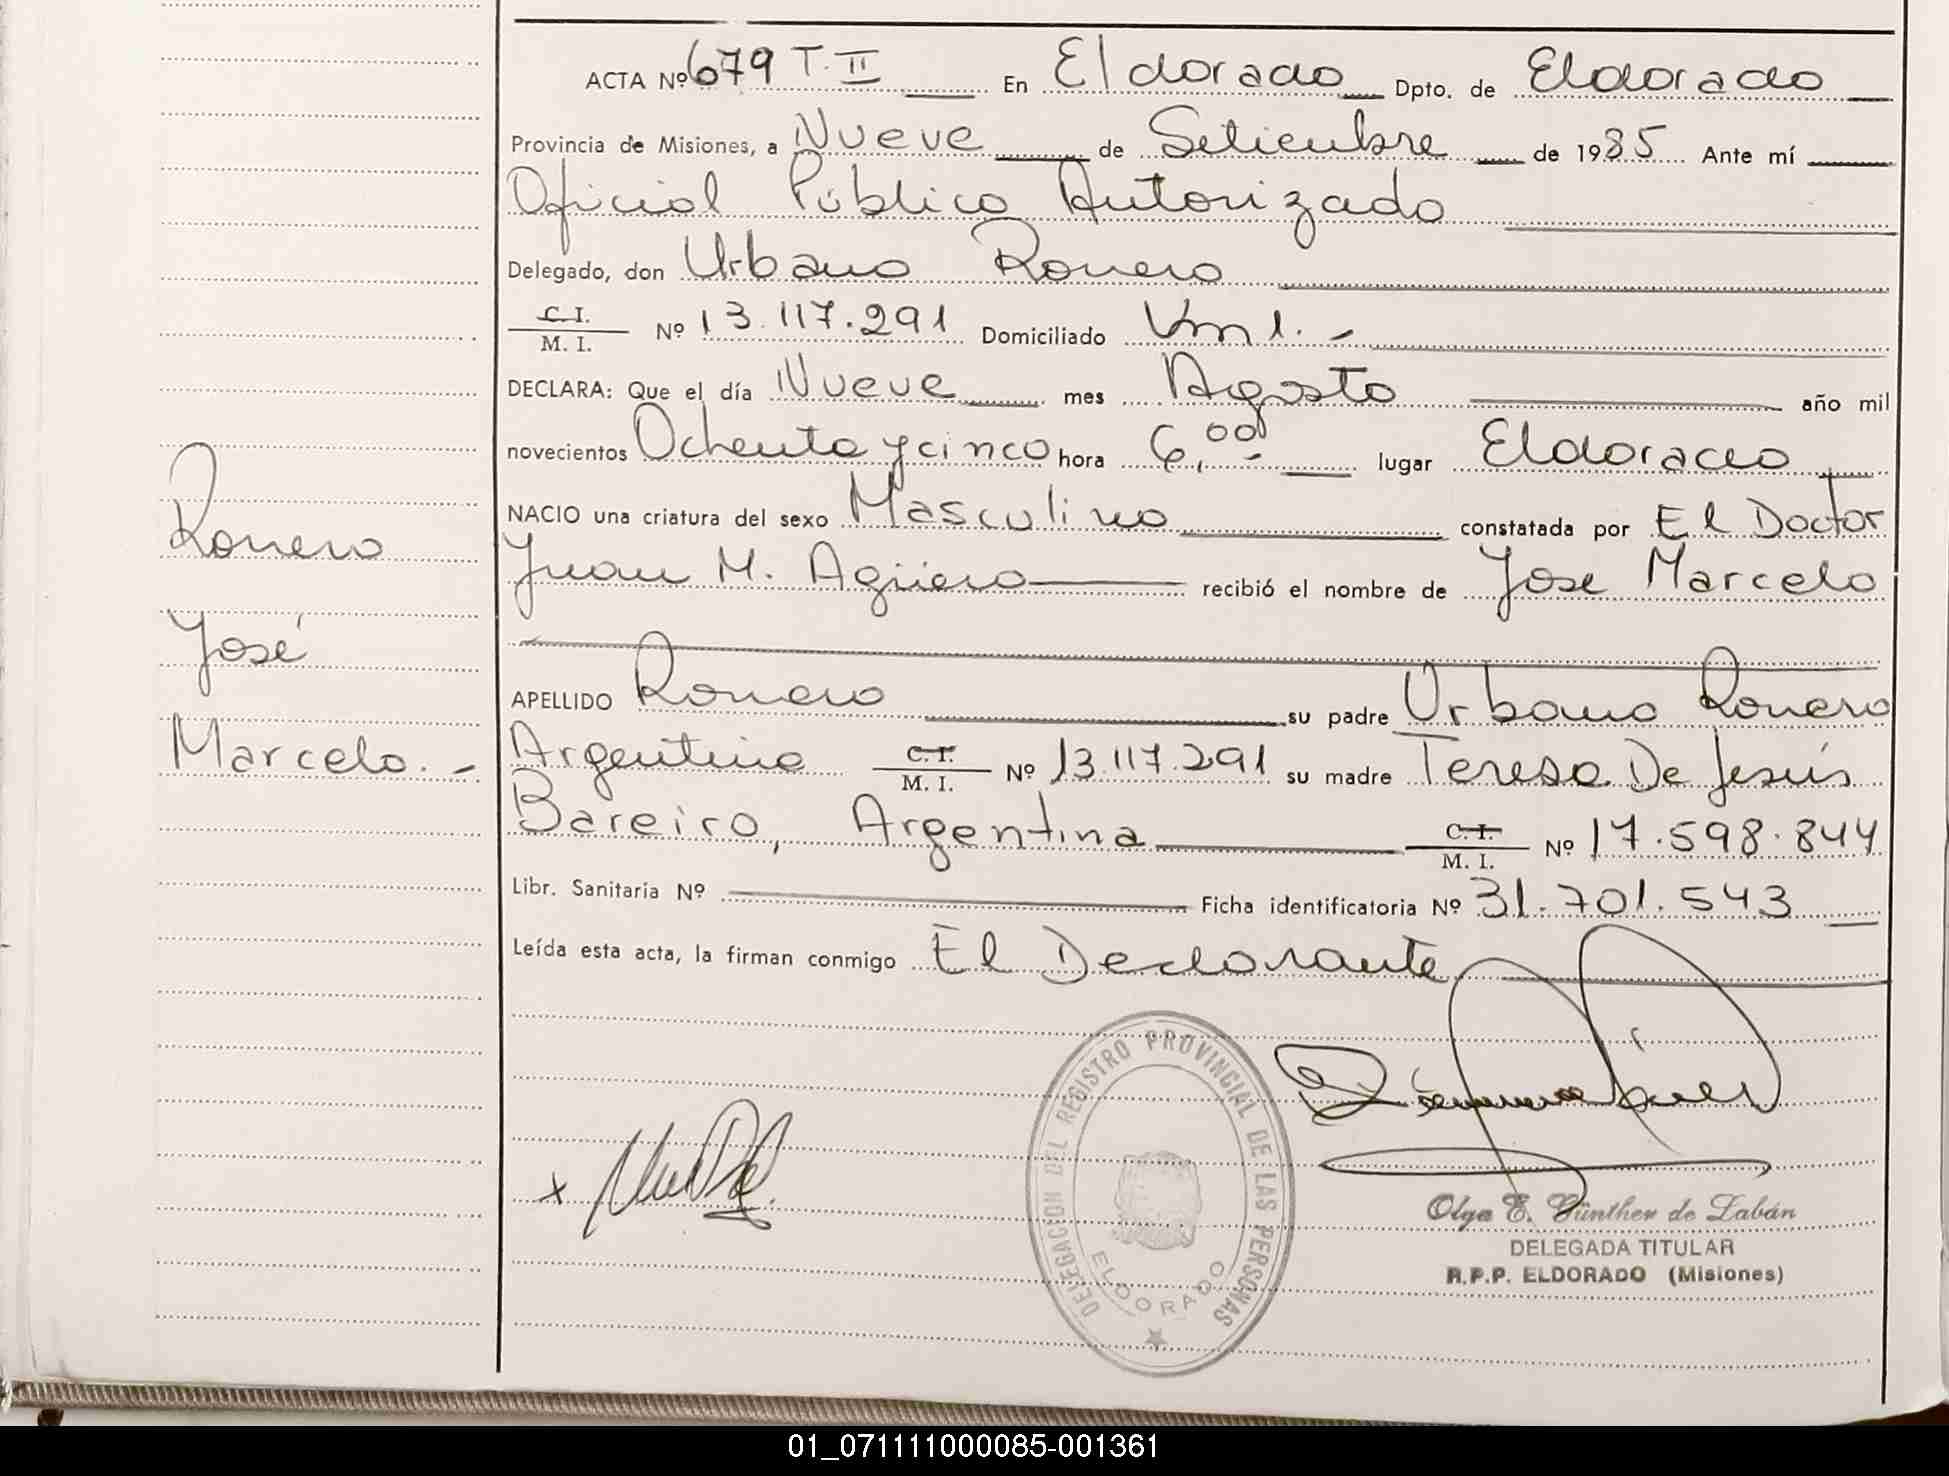 ACTA Nº 679 T. II En Eldorado Dpto. de Eldorado
Provincia de Misiones, a Nueve de Setiembre de 1985 Ante mí
Oficial Público Autorizado
Delegado, don Urbano Romero
C.I.
M. I. Nº 13.117.291 Domiciliado Km 1.-
DECLARA: Que el día Nueve mes Agosto año mil
novecientos Ochenta y cinco hora 6,00- lugar Eldorado
NACIO una criatura del sexo Masculino constatada por El Doctor
Juan M. Agüero recibió el nombre de Jose Marcelo
APELLIDO Romero su padre Urbano Romero
Argentino C.I. M. I. Nº 13.117.291 su madre Teresa De Jesús
Bareiro, Argentina C.I. M. I. Nº 17.598.844
Libr. Sanitaria Nº Ficha identificatoria Nº 31.701.543
Leída esta acta, la firman conmigo El Declarante
Romero
José
Marcelo.-
x
DELEGACION DEL REGISTRO PROVINCIAL DE LAS PERSONAS
ELDORADO
Olga E. Günther de Labán
DELEGADA TITULAR
R.P.P. ELDORADO (Misiones)
01_071111000085-001361